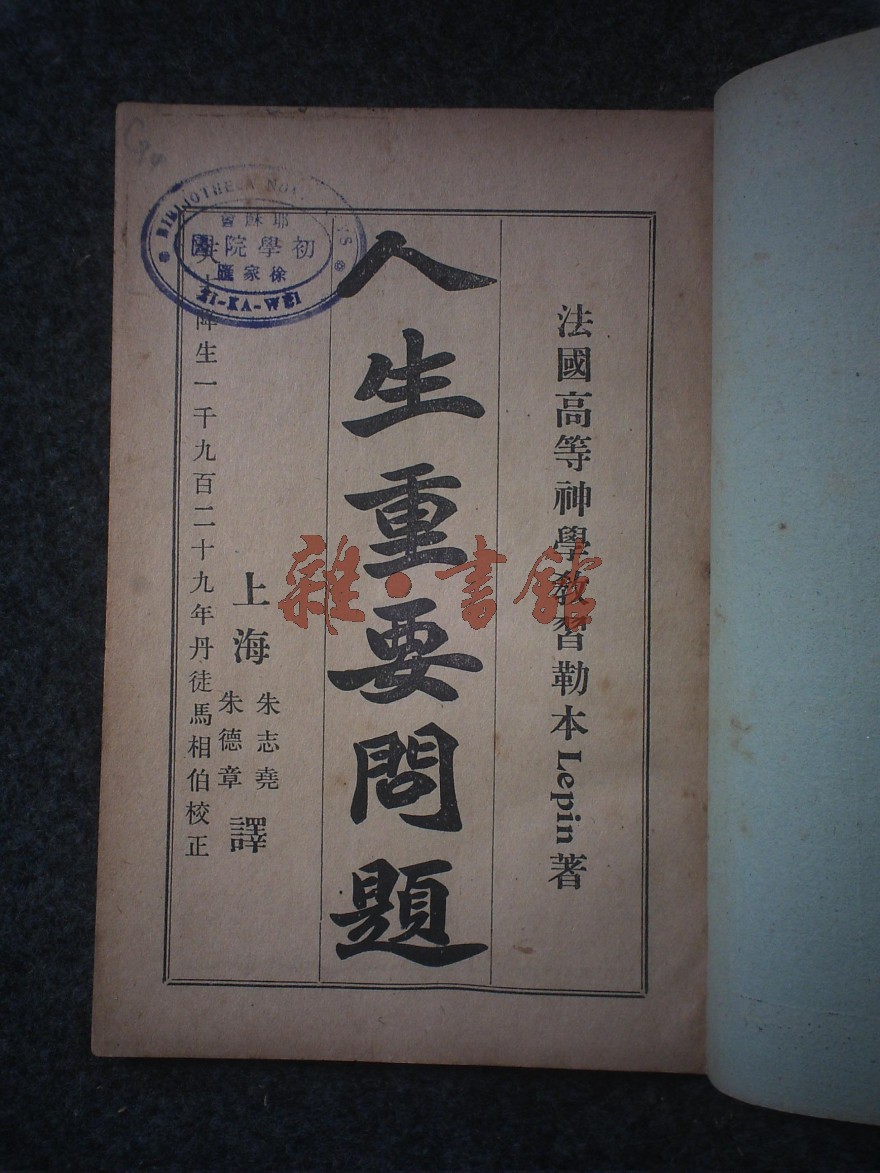 法國高等神學教習勒本Lepin著
人生重要問題
上海 朱志堯 朱德章 譯
降生一千九百二十九年丹徒馬相伯校正
BIBLIOTHECA
耶穌會
初學院
徐家匯
ZI-KA-WEI
雜·書館